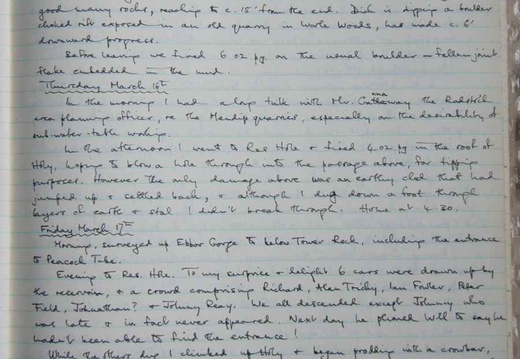 good many rocks, reaching to c. 15' from the end. Dick is digging a boulder
choked rift exposed in an old quarry in Worle Woods, has made c. 6'
downward progress.
Before leaving we fired 6 oz pg. on the usual boulder - fallen joint
flake embedded in the mud.
Thursday March 16th
In the morning I had a long talk with Mr. the Radstock
area planning officer, re the Mendip quarries, especially on the desirability of
sub-water-table working.
In the afternoon I went to Res. Hole & fired 4 oz pg in the roof of
Hly, hoping to blow a hole through into the passage above, for tipping
purposes. However the only damage above was an earthy clod that had
jumped up & settled back, & although I dug down a foot through
layers of earth & stal I didn't break through. Home at 4.30.
Friday March 17th
Morning, surveyed up Ebbor Gorge to below Tower Rock, including the entrance
to Peacock Tube.
Evening to Res. Hole. To my surprise & delight 6 cars were drawn up by
the reservoir, & a crowd comprising Richard, Alan Ian Foster, Peter
Field, Johnathan? & Johnny Reay. We all descended except Johnny who
was late & in fact never appeared. Next day he phoned Will to say he
hadn't been able to find the entrance!
While the others dug I climbed up Hly & began prodding with a crowbar,